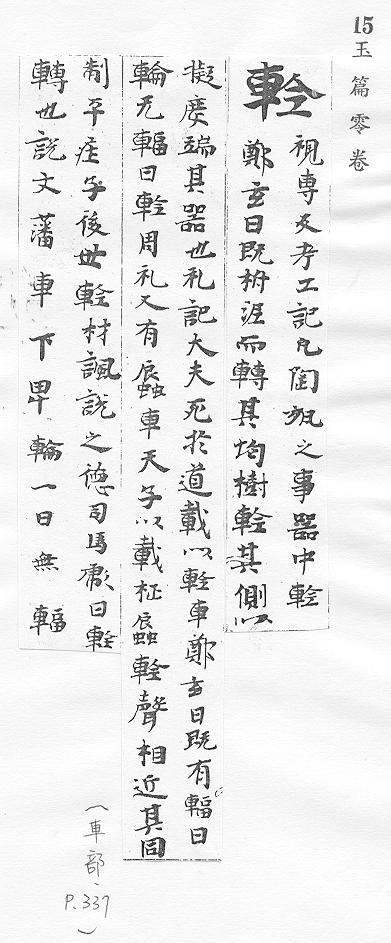 15
玉篇零卷
輇
視專反考工記凡陶瓬之事器中輇
鄭玄曰既拊泥而轉其均樹輇其側以
擬度端其器也礼記大夫死於道載以輇車鄭玄曰既有輻曰
輪无輻曰輇周礼又有蜃車天子以載柩蜃輇聲相近其同
制乎莊子後世輇材諷説之德司馬彪曰輇
轉也説文藩車下卑輪一曰無輻
(車部、
P.337
)